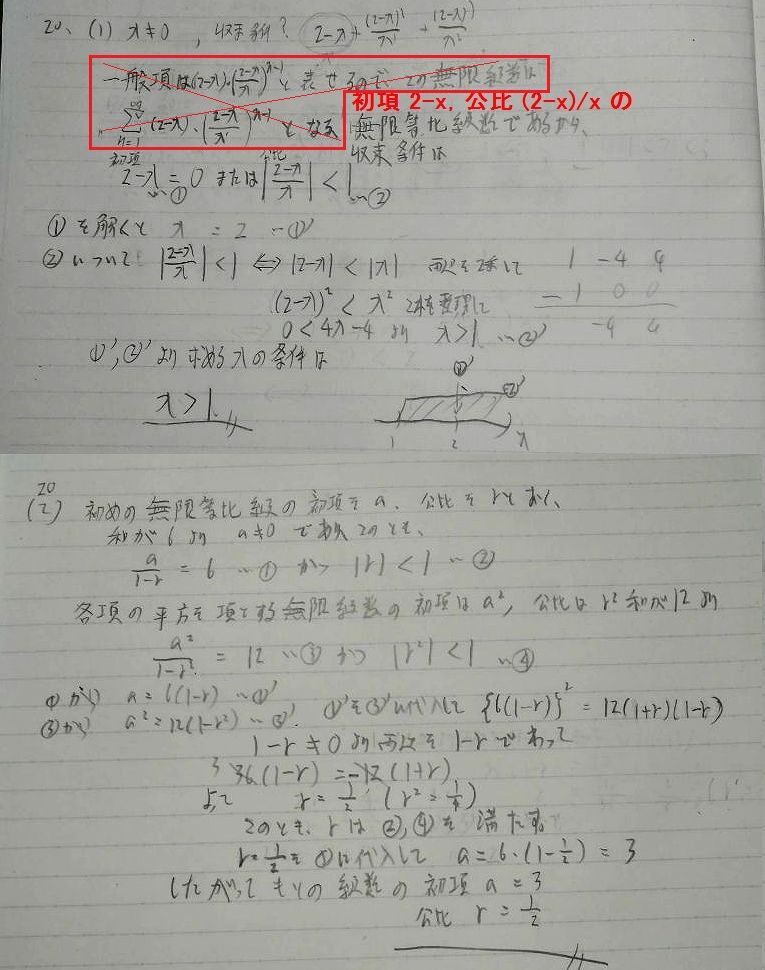 20、(1) x≠0 , 収束条件? 2-x+(2-x)²/x+(2-x)³/x²
一般項は(2-x)・((2-x)/x)^(n-1)と表せるので、この無限級数は
初項 2-x, 公比 (2-x)/x の
∑_{n=1}^{∞}(2-x)・((2-x)/x)^(n-1) となる 無限等比級数であるから、
収束条件は
初項 公比
2-x=0 または |(2-x)/x|<1
…① …②
①を解くと x = 2 …①'
②について |(2-x)/x|<1 ⇔ |2-x|<|x| 両辺を2乗して 1 -4 4
(2-x)²<x² これを整理して - 1 0 0
0<4x-4 より x>1 …②' -4 4
①',②'より求めるxの条件は
x>1
①' ②'
1 2 x
20
(2) 初めの無限等比級数の初項をa、公比をrとおく、
和が6より a≠0 である このとき、
a/(1-r) = 6 …① かつ |r|<1 …②
各項の平方を項とする無限級数の初項はa², 公比はr² 和が12より
a²/(1-r²) = 12 …③ かつ |r²|<1 …④
①から a=6(1-r) …①'
③から a²=12(1-r²) …③'. ①'を③'に代入して {6(1-r)}²=12(1+r)(1-r)
1-r≠0より両辺を1-rでわって
3 36(1-r)=12(1+r)
よって r=1/2 (r²=1/4)
このとき、rは②,④を満たす。
r=1/2を①に代入して a=6・(1-1/2)=3
したがってもとの級数の初項 a=3
公比 r=1/2